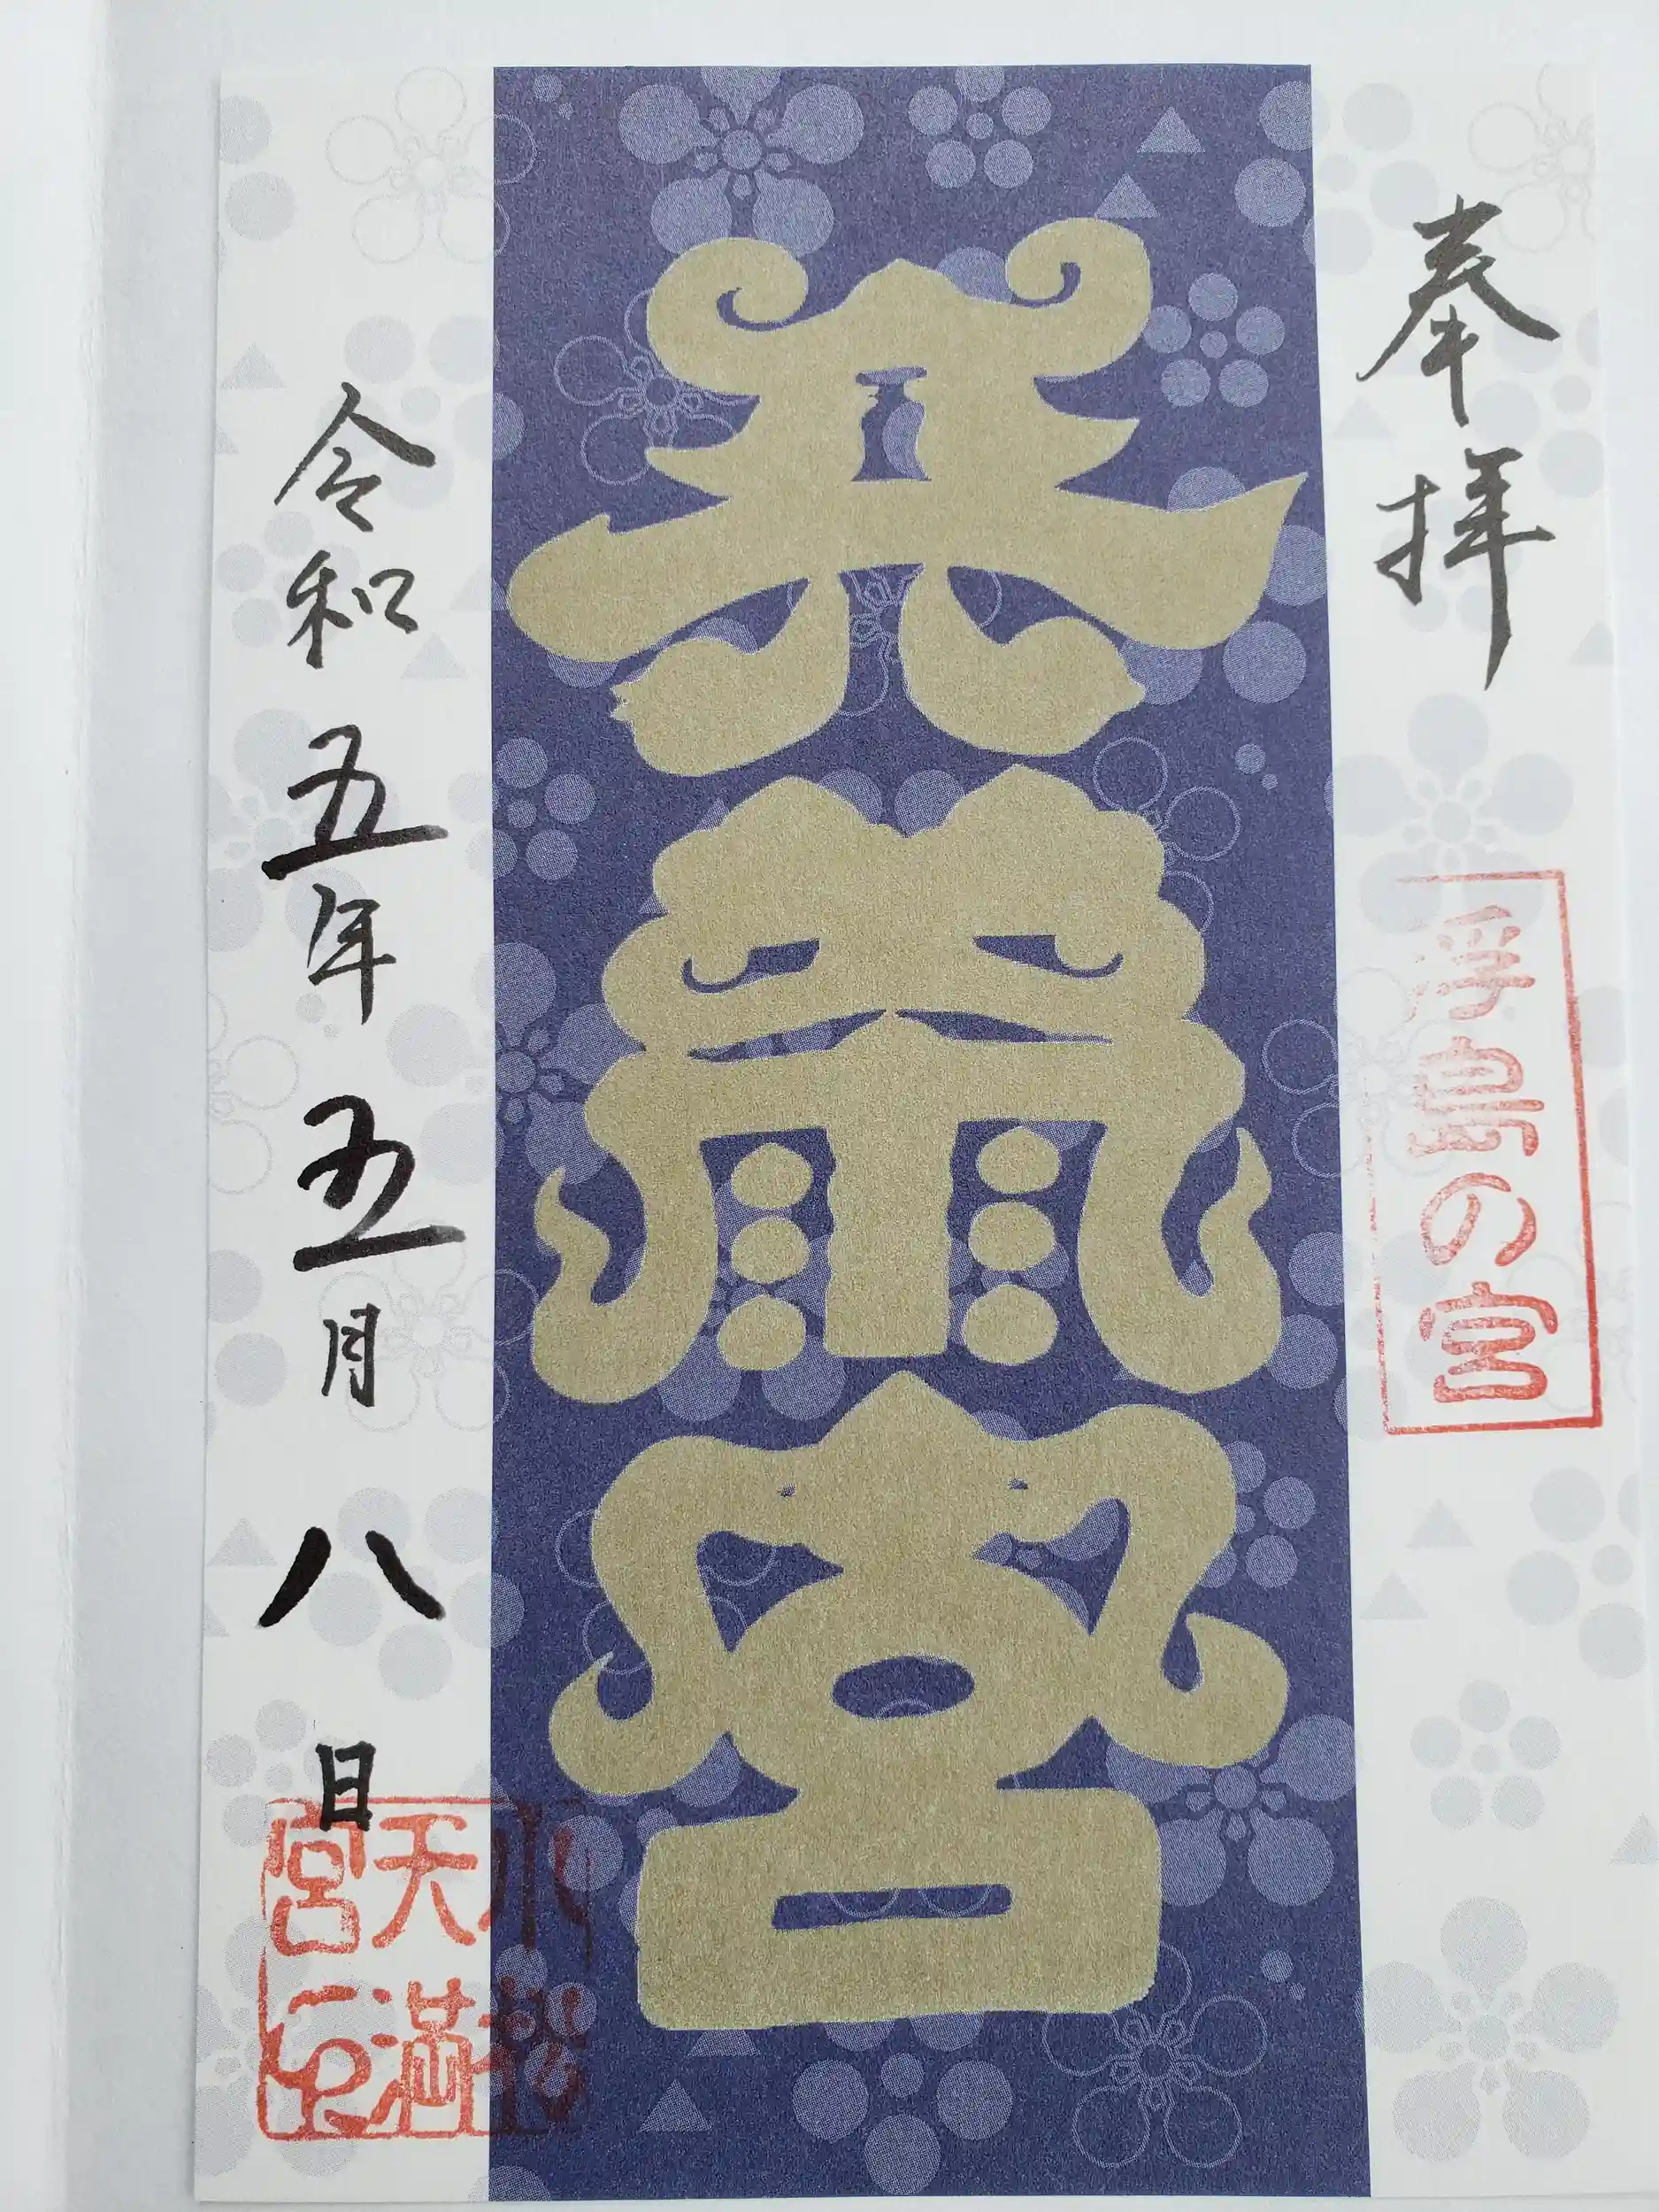 奉拝
浮島の宮
令和五年五月八日
小松
天満
宮印